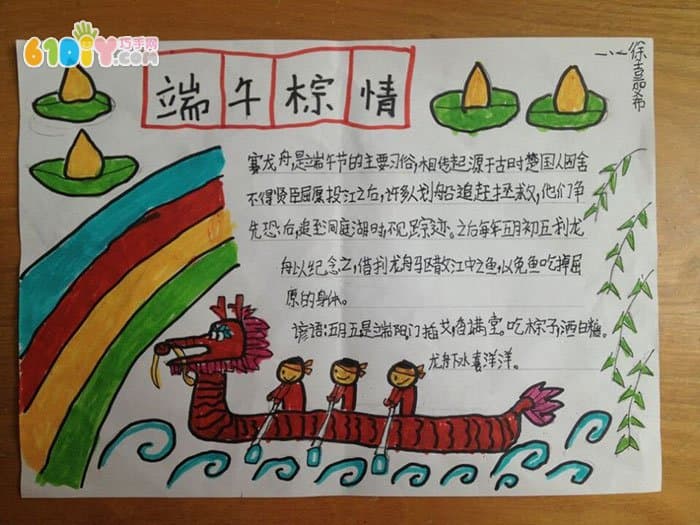 61DIY巧手网
.com
端午棕情
一、心徐吉婴希
赛龙舟,是端午节的主要习俗,相传起源于古时楚国人因舍
不得贤臣屈原投江之后,许多人划船追赶拯救,他们争
先恐后,追至洞庭湖时不见踪迹。之后每年五月初五划龙
舟以纪念之,借划龙舟驱散江中之鱼,以免鱼吃掉屈
原的身体。
谚语:五月五是端阳门插艾,香满堂。吃棕子,洒白糖。
龙舟下水喜洋洋。